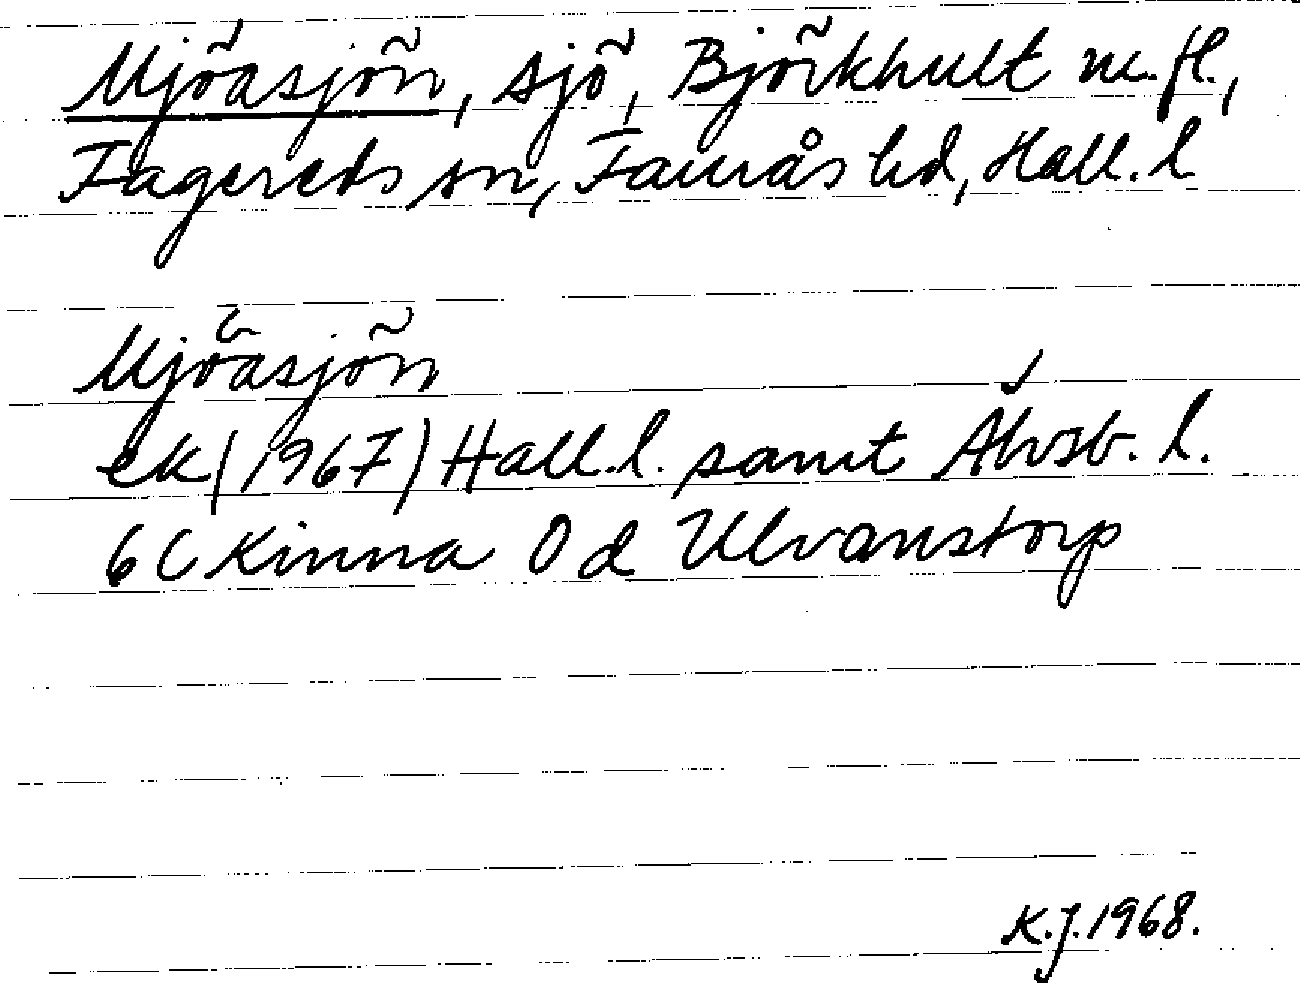 Mjöasjön, sjö, Björkhult m.fl.,
Fagereds sn, Faurås hd, Hall. l.
Mjöasjön
ek (1967) Hall. l. samt Älvsb. l.
6 C Kinna 0 d Ulvanstorp
K.J. 1968.